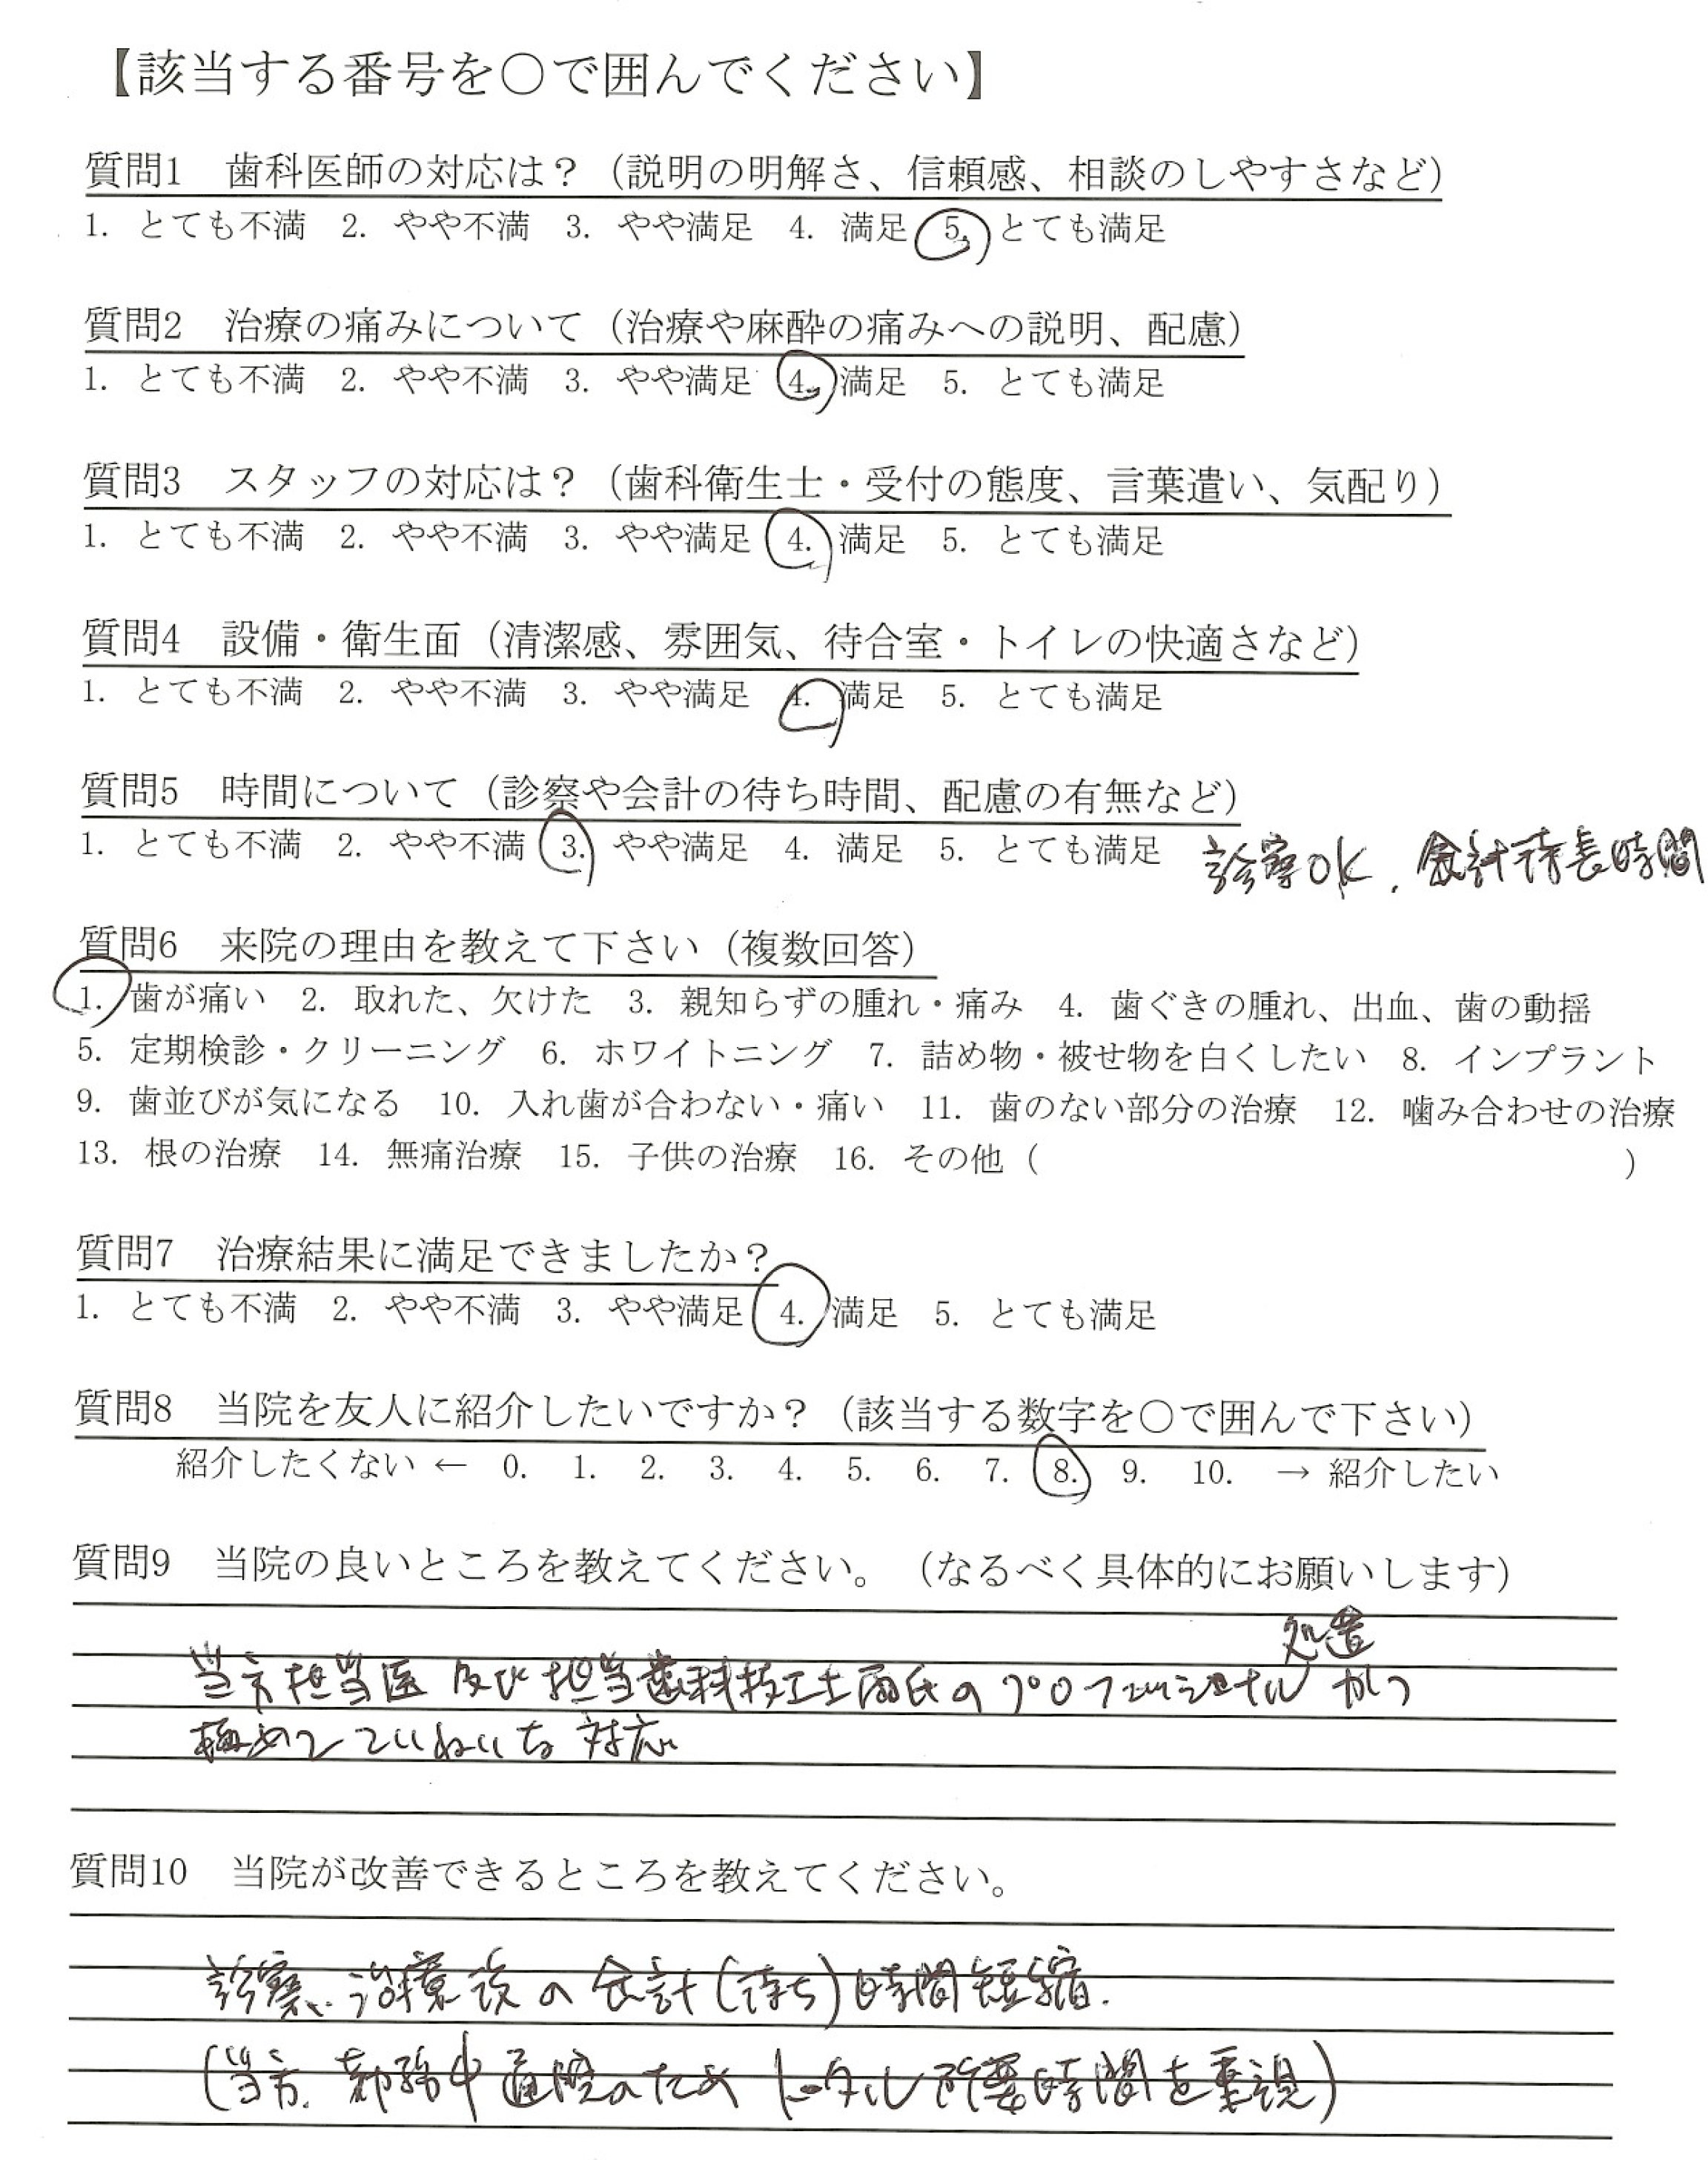 【該当する番号を〇で囲んでください】
質問1　歯科医師の対応は？（説明の明解さ、信頼感、相談のしやすさなど）
1. とても不満　2. やや不満　3. やや満足　4. 満足　5. とても満足
質問2　治療の痛みについて（治療や麻酔の痛みへの説明、配慮）
1. とても不満　2. やや不満　3. やや満足　4. 満足　5. とても満足
質問3　スタッフの対応は？（歯科衛生士・受付の態度、言葉遣い、気配り）
1. とても不満　2. やや不満　3. やや満足　4. 満足　5. とても満足
質問4　設備・衛生面（清潔感、雰囲気、待合室・トイレの快適さなど）
1. とても不満　2. やや不満　3. やや満足　4. 満足　5. とても満足
質問5　時間について（診察や会計の待ち時間、配慮の有無など）
1. とても不満　2. やや不満　3. やや満足　4. 満足　5. とても満足　診察OK, 会計待長時間
質問6　来院の理由を教えて下さい（複数回答）
1. 歯が痛い　2. 取れた、欠けた　3. 親知らずの腫れ・痛み　4. 歯ぐきの腫れ、出血、歯の動揺
5. 定期検診・クリーニング　6. ホワイトニング　7. 詰め物・被せ物を白くしたい　8. インプラント
9. 歯並びが気になる　10. 入れ歯が合わない・痛い　11. 歯のない部分の治療　12. 噛み合わせの治療
13. 根の治療　14. 無痛治療　15. 子供の治療　16. その他（　　　　　　）
質問7　治療結果に満足できましたか？
1. とても不満　2. やや不満　3. やや満足　4. 満足　5. とても満足
質問8　当院を友人に紹介したいですか？（該当する数字を〇で囲んで下さい）
紹介したくない ← 0. 1. 2. 3. 4. 5. 6. 7. 8. 9. 10. → 紹介したい
質問9　当院の良いところを教えてください。（なるべく具体的にお願いします）
処置
当方担当医及び担当歯科技工士両氏のプロフェッショナル かつ
極めてていねいな対応
質問10　当院が改善できるところを教えてください。
診察、治療後の会計(待ち)時間短縮.
(当方、勤務中通院のためトータル所要時間を重視)